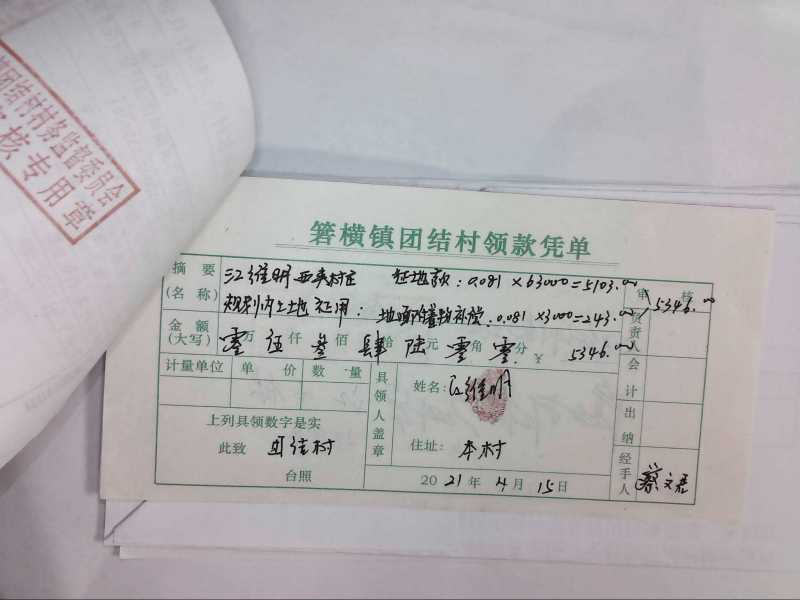 团结村村务监督委员会
核专用章
箬横镇团结村领款凭单
摘要(名称) 江维明西来村庄 征地款：0.081×63000=5103.00
规划内土地征用： 地面附着物补偿：0.081×3000=243.00 5346.00
审核
金额(大写) 零万伍仟叁佰肆拾陆元零角零分 ¥ 5346.00
负责
计量单位 单价 数量 具领人盖章 姓名：江维明 会计
上列具领数字是实
此致 团结村 住址：本村 出纳
台照 2021年4月15日 经手人 蔡文